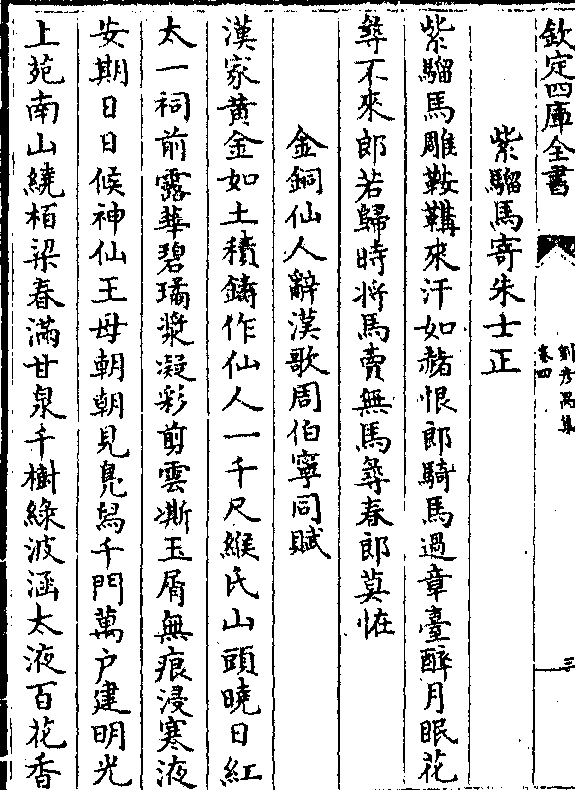 欽定四庫全書
劉彥昺集
卷四
三
紫騮馬寄朱士正
紫騮馬雕鞍韝來汗如赭恨郎騎馬過章臺醉月眠花
辤不來郎若歸時將馬賣無馬尋春郎莫恠
金銅仙人辭漢歌周伯寧同賦
漢家黄金如土積鑄作仙人一千尺緱氏山頭曉日紅
太一祠前露華碧璚漿凝彩剪雲澌玉屑無痕浸寒液
安期日日候神仙王母朝朝見鳧舄千門萬户建明光
上苑南山繞栢梁春滿甘泉千樹綠波涵太液百花香